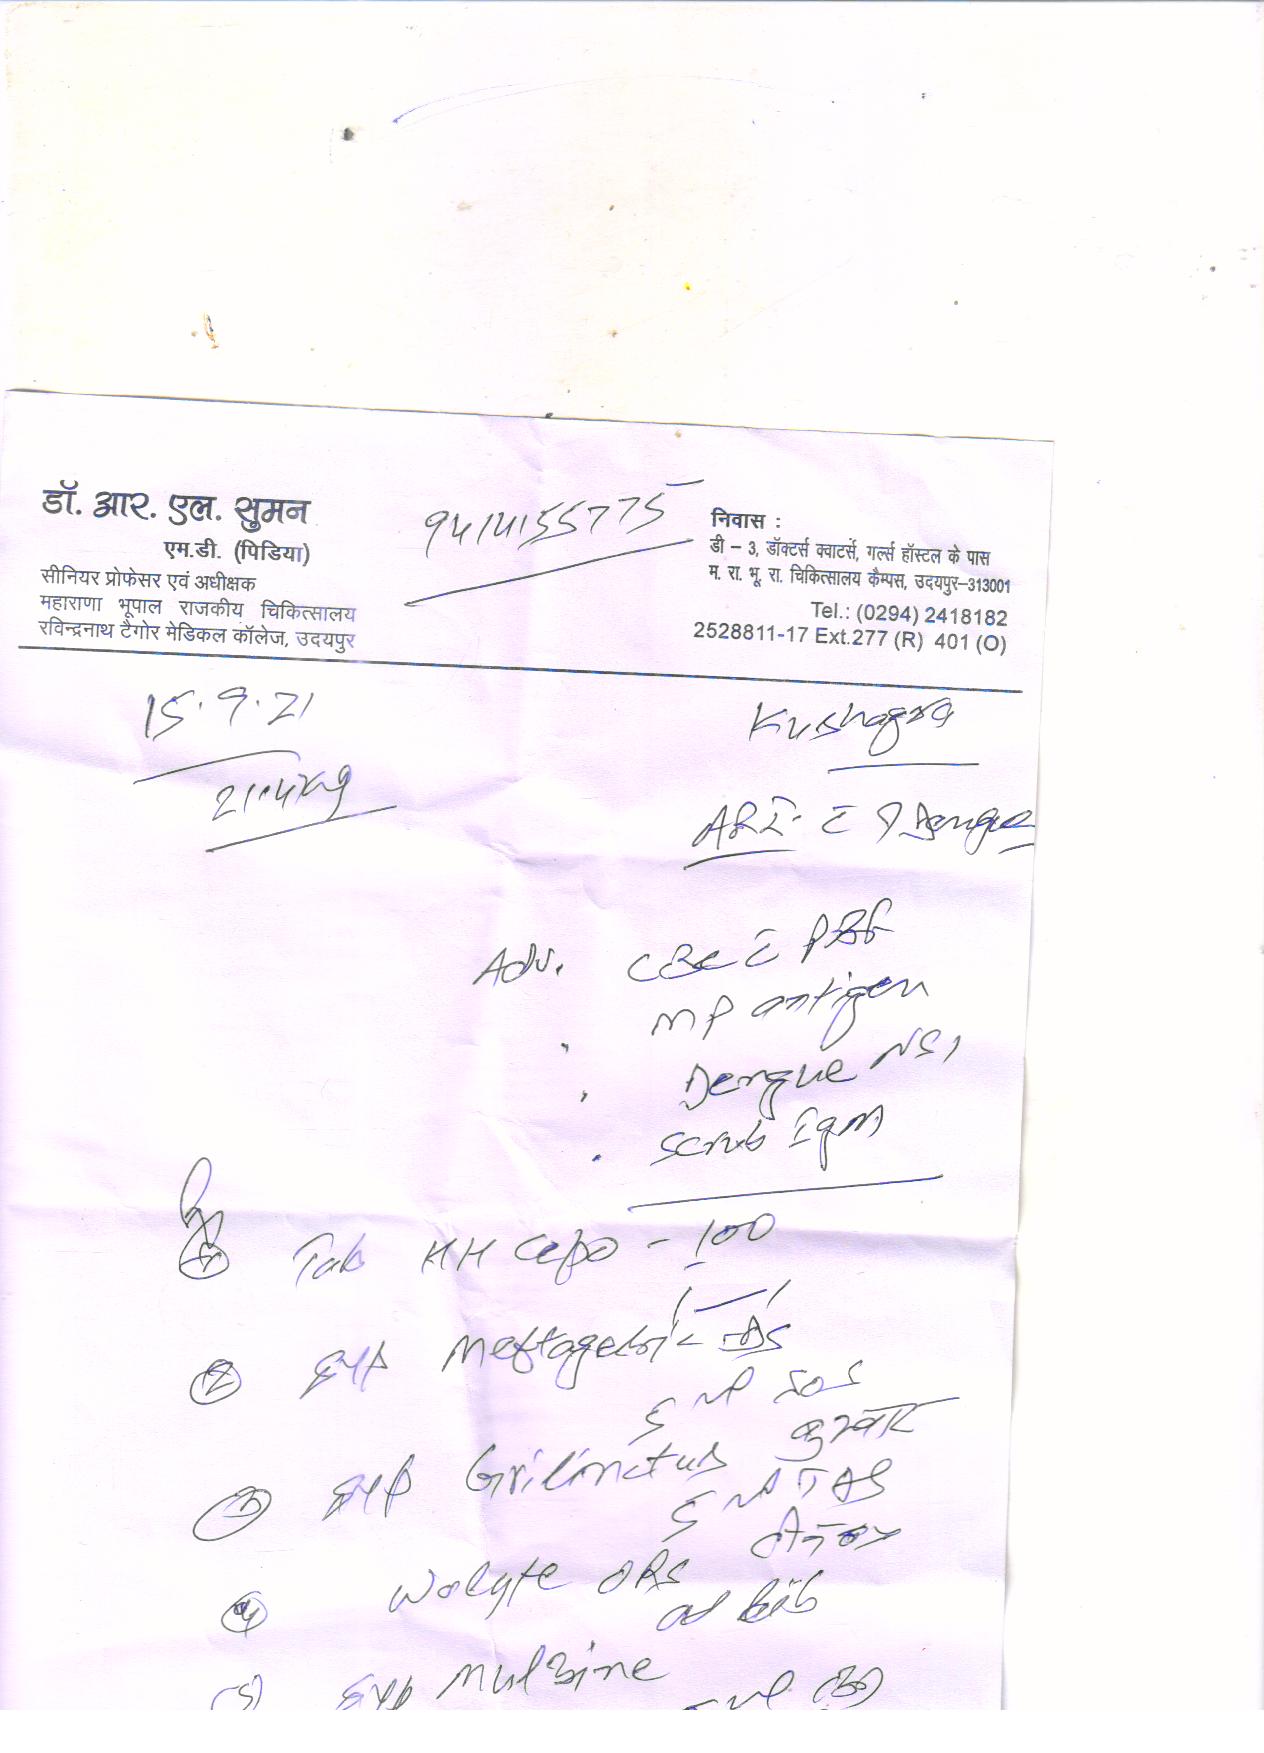 डॉ. आर. एल. सुमन
एम.डी. (पिडिया)
सीनियर प्रोफेसर एवं अधीक्षक
महाराणा भूपाल राजकीय चिकित्सालय
रविन्द्रनाथ टैगोर मेडिकल कॉलेज, उदयपुर
9414155775
निवास :
डी – 3, डॉक्टर्स क्वाटर्से, गर्ल्स हॉस्टल के पास
म. रा. भू. रा. चिकित्सालय कैम्पस, उदयपुर–313001
Tel.: (0294) 2418182
2528811-17 Ext.277 (R) 401 (O)
15.9.21
21.4kg
Kushagra
ARI- c̄ ? Dengue
Adv. CBC c̄ PBF
MP antigen
Dengue NS1
Scrub IgM
① Tab HH Cepo - 100
1 — 1
② Syp Meftagesic - DS
5 ml SOS
बुखार
③ Syp Grilinctus
5 ml TDS
④ Wolyte ORS
ad lib
(5) Syp Mulzine
5 ml